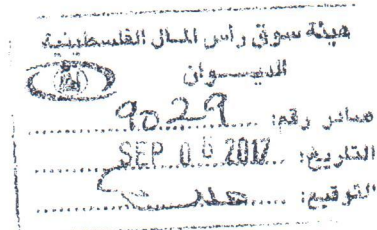 هيئة سوق رأس المال الفلسطينية
الديـــوان
صادر رقم: 9029
التاريخ: SEP 06 2017
التوقيع: